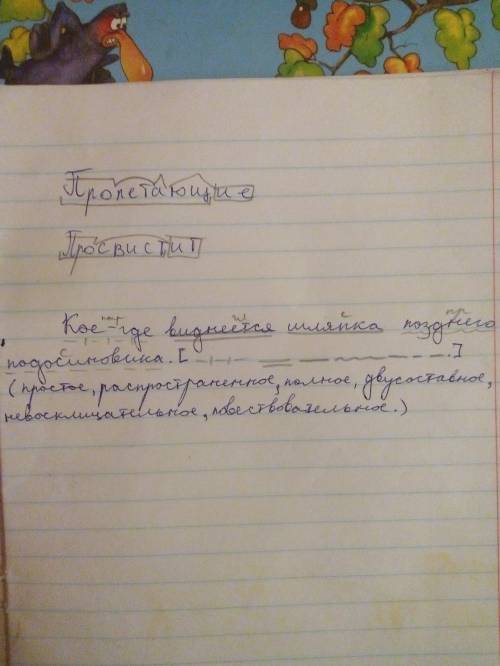 Пролетающие
Просвистит
Кое-где виднеется шляпка позднего
подосиновика. [ ]
(простое, распространенное, полное, двусоставное,
невосклицательное, повествовательное.)